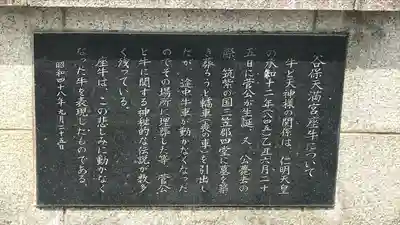 谷保天満宮座牛について
牛と天神様の関係は、仁明天皇
の承和十二年(八四五)乙丑六月二十
五日に菅公が生誕、又、公薨去の
際、筑紫の国三笠郡四堂に墓を築
き葬らうと轜車(喪の車)を引出し
たが、途中牛車が動かなくなった
のでその場所に埋葬した等、菅公
と牛に関する神秘的な伝説が数多
く残っている。
座牛は、この悲しみに動かなく
なった牛を表現したものである。
昭和四十八年九月二十五日